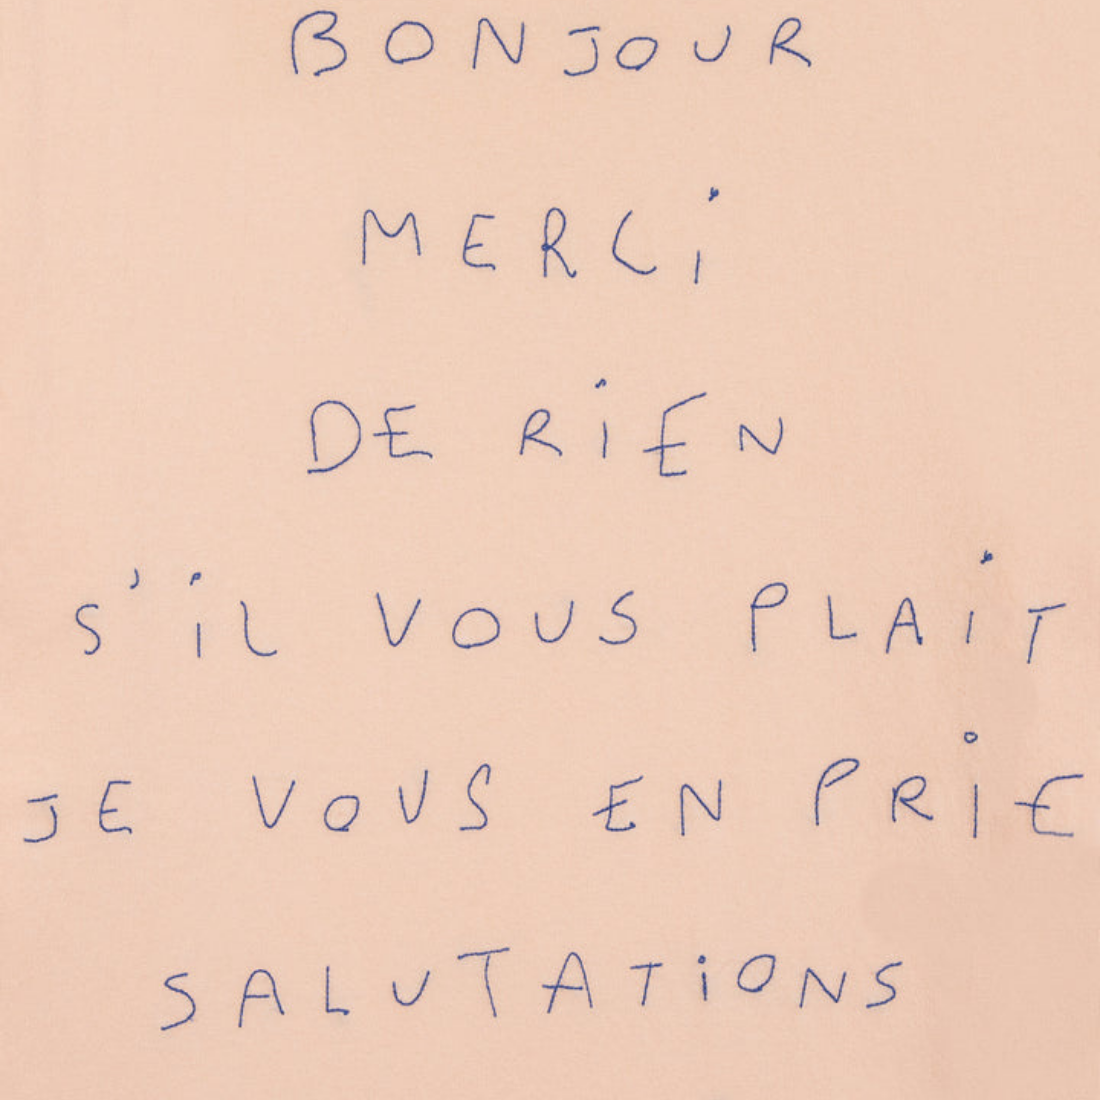 BONJOUR
MERCi
DE RiEN
S'iL VOUS PLAiT
JE VOUS EN PRiE
SALUTATiONS